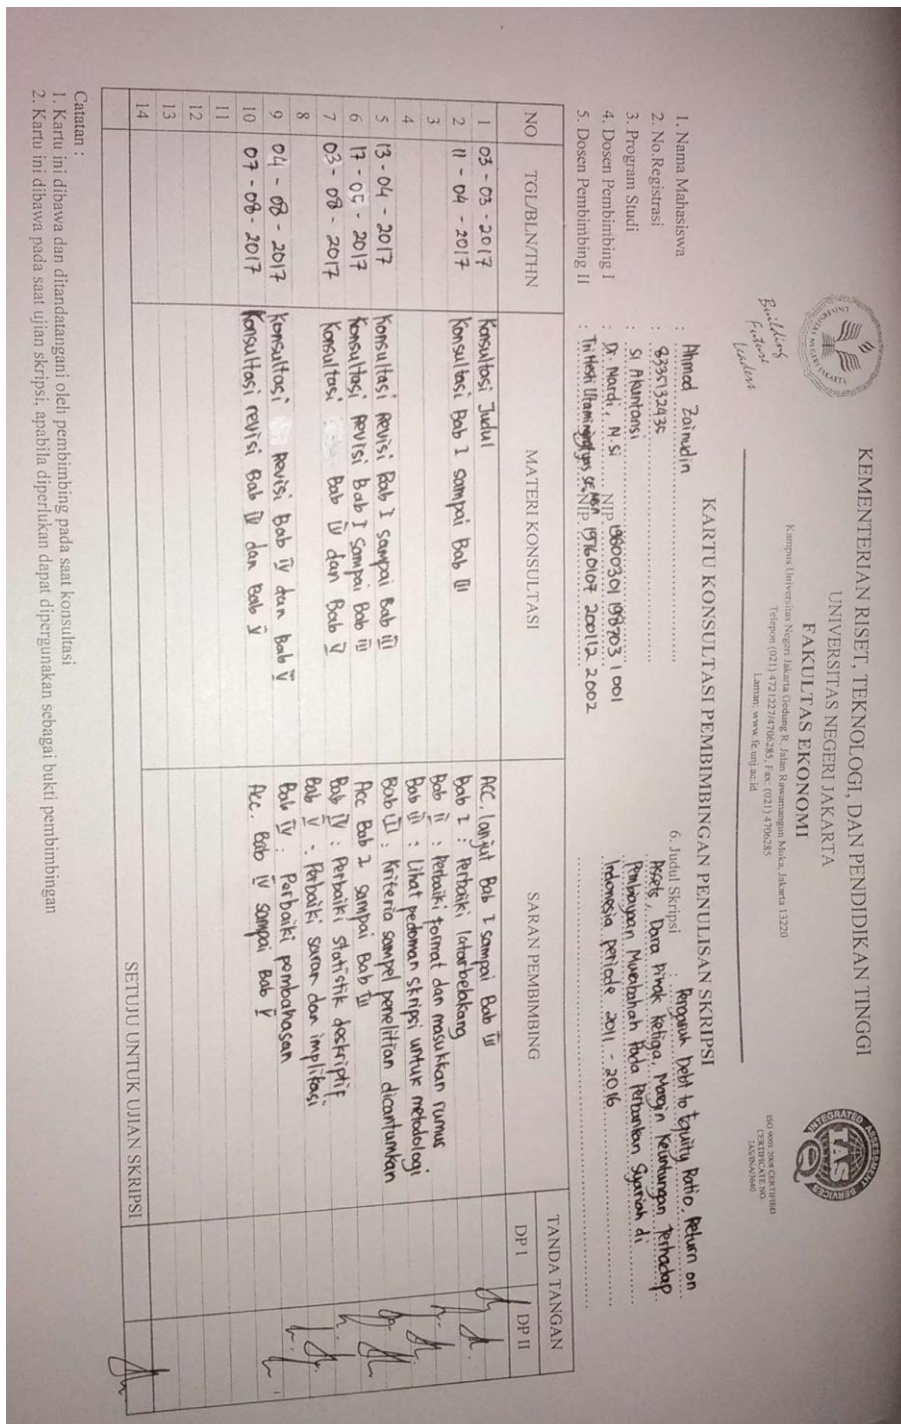 KEMENTERIAN RISET, TEKNOLOGI, DAN PENDIDIKAN TINGGI
UNIVERSITAS NEGERI JAKARTA
FAKULTAS EKONOMI
Kampus Universitas Negeri Jakarta Gedung R, Jalan Rawamangun Muka, Jakarta 13220
Telepon (021) 4721227/4706285, Fax: (021) 4706285
Laman: www.fe.unj.ac.id
UNIVERSITAS NEGERI JAKARTA
Building
Future
Leaders
INTEGRATED ASSESSMENT SERVICES
IAS
ISO 9001:2008 CERTIFIED
CERTIFICATE NO.
IAS/INA/3640
KARTU KONSULTASI PEMBIMBINGAN PENULISAN SKRIPSI
1. Nama Mahasiswa : Ahmad Zainudin
2. No.Registrasi : 8335132435
3. Program Studi : S1 Akuntansi
4. Dosen Pembimbing I : Dr. Mardi, M.Si NIP 19600301 198703 1 001
5. Dosen Pembimbing II : Tri Hesti NIP 19760107 200112 2002
6. Judul Skripsi : Pengaruh Debt to Equity Ratio, Return on
Assets, Dana Pihak Ketiga, Margin Keuntungan Terhadap
Pembiayaan Murabahah Pada Perbankan Syariah di
Indonesia periode 2011 - 2016
NO TGL/BLN/THN MATERI KONSULTASI SARAN PEMBIMBING TANDA TANGAN
DP I DP II
1 03 - 03 - 2017 Konsultasi Judul ACC, lanjut Bab I sampai Bab III
2 11 - 04 - 2017 Konsultasi Bab I sampai Bab III Bab I : Perbaiki latarbelakang
3 Bab II : Perbaiki format dan masukkan rumus
4 Bab III : Lihat pedoman skripsi untuk metodologi
5 13 - 04 - 2017 Konsultasi Revisi Bab I sampai Bab III Bab III : Kriteria sampel penelitian dicantumkan
6 17 - 05 - 2017 Konsultasi Revisi bab I sampai Bab III Acc Bab I sampai Bab III
7 03 - 08 - 2017 Konsultasi Bab IV dan Bab V Bab IV : Perbaiki statistik deskriptif
8 Bab V : Perbaiki saran dan implikasi
9 04 - 08 - 2017 Konsultasi Revisi Bab IV dan Bab V Bab IV : Perbaiki pembahasan
10 07 - 08 - 2017 Konsultasi revisi Bab IV dan Bab V Acc. Bab IV sampai Bab V
11
12
13
14
SETUJU UNTUK UJIAN SKRIPSI
Catatan :
1. Kartu ini dibawa dan ditandatangani oleh pembimbing pada saat konsultasi
2. Kartu ini dibawa pada saat ujian skripsi, apabila diperlukan dapat dipergunakan sebagai bukti pembimbingan